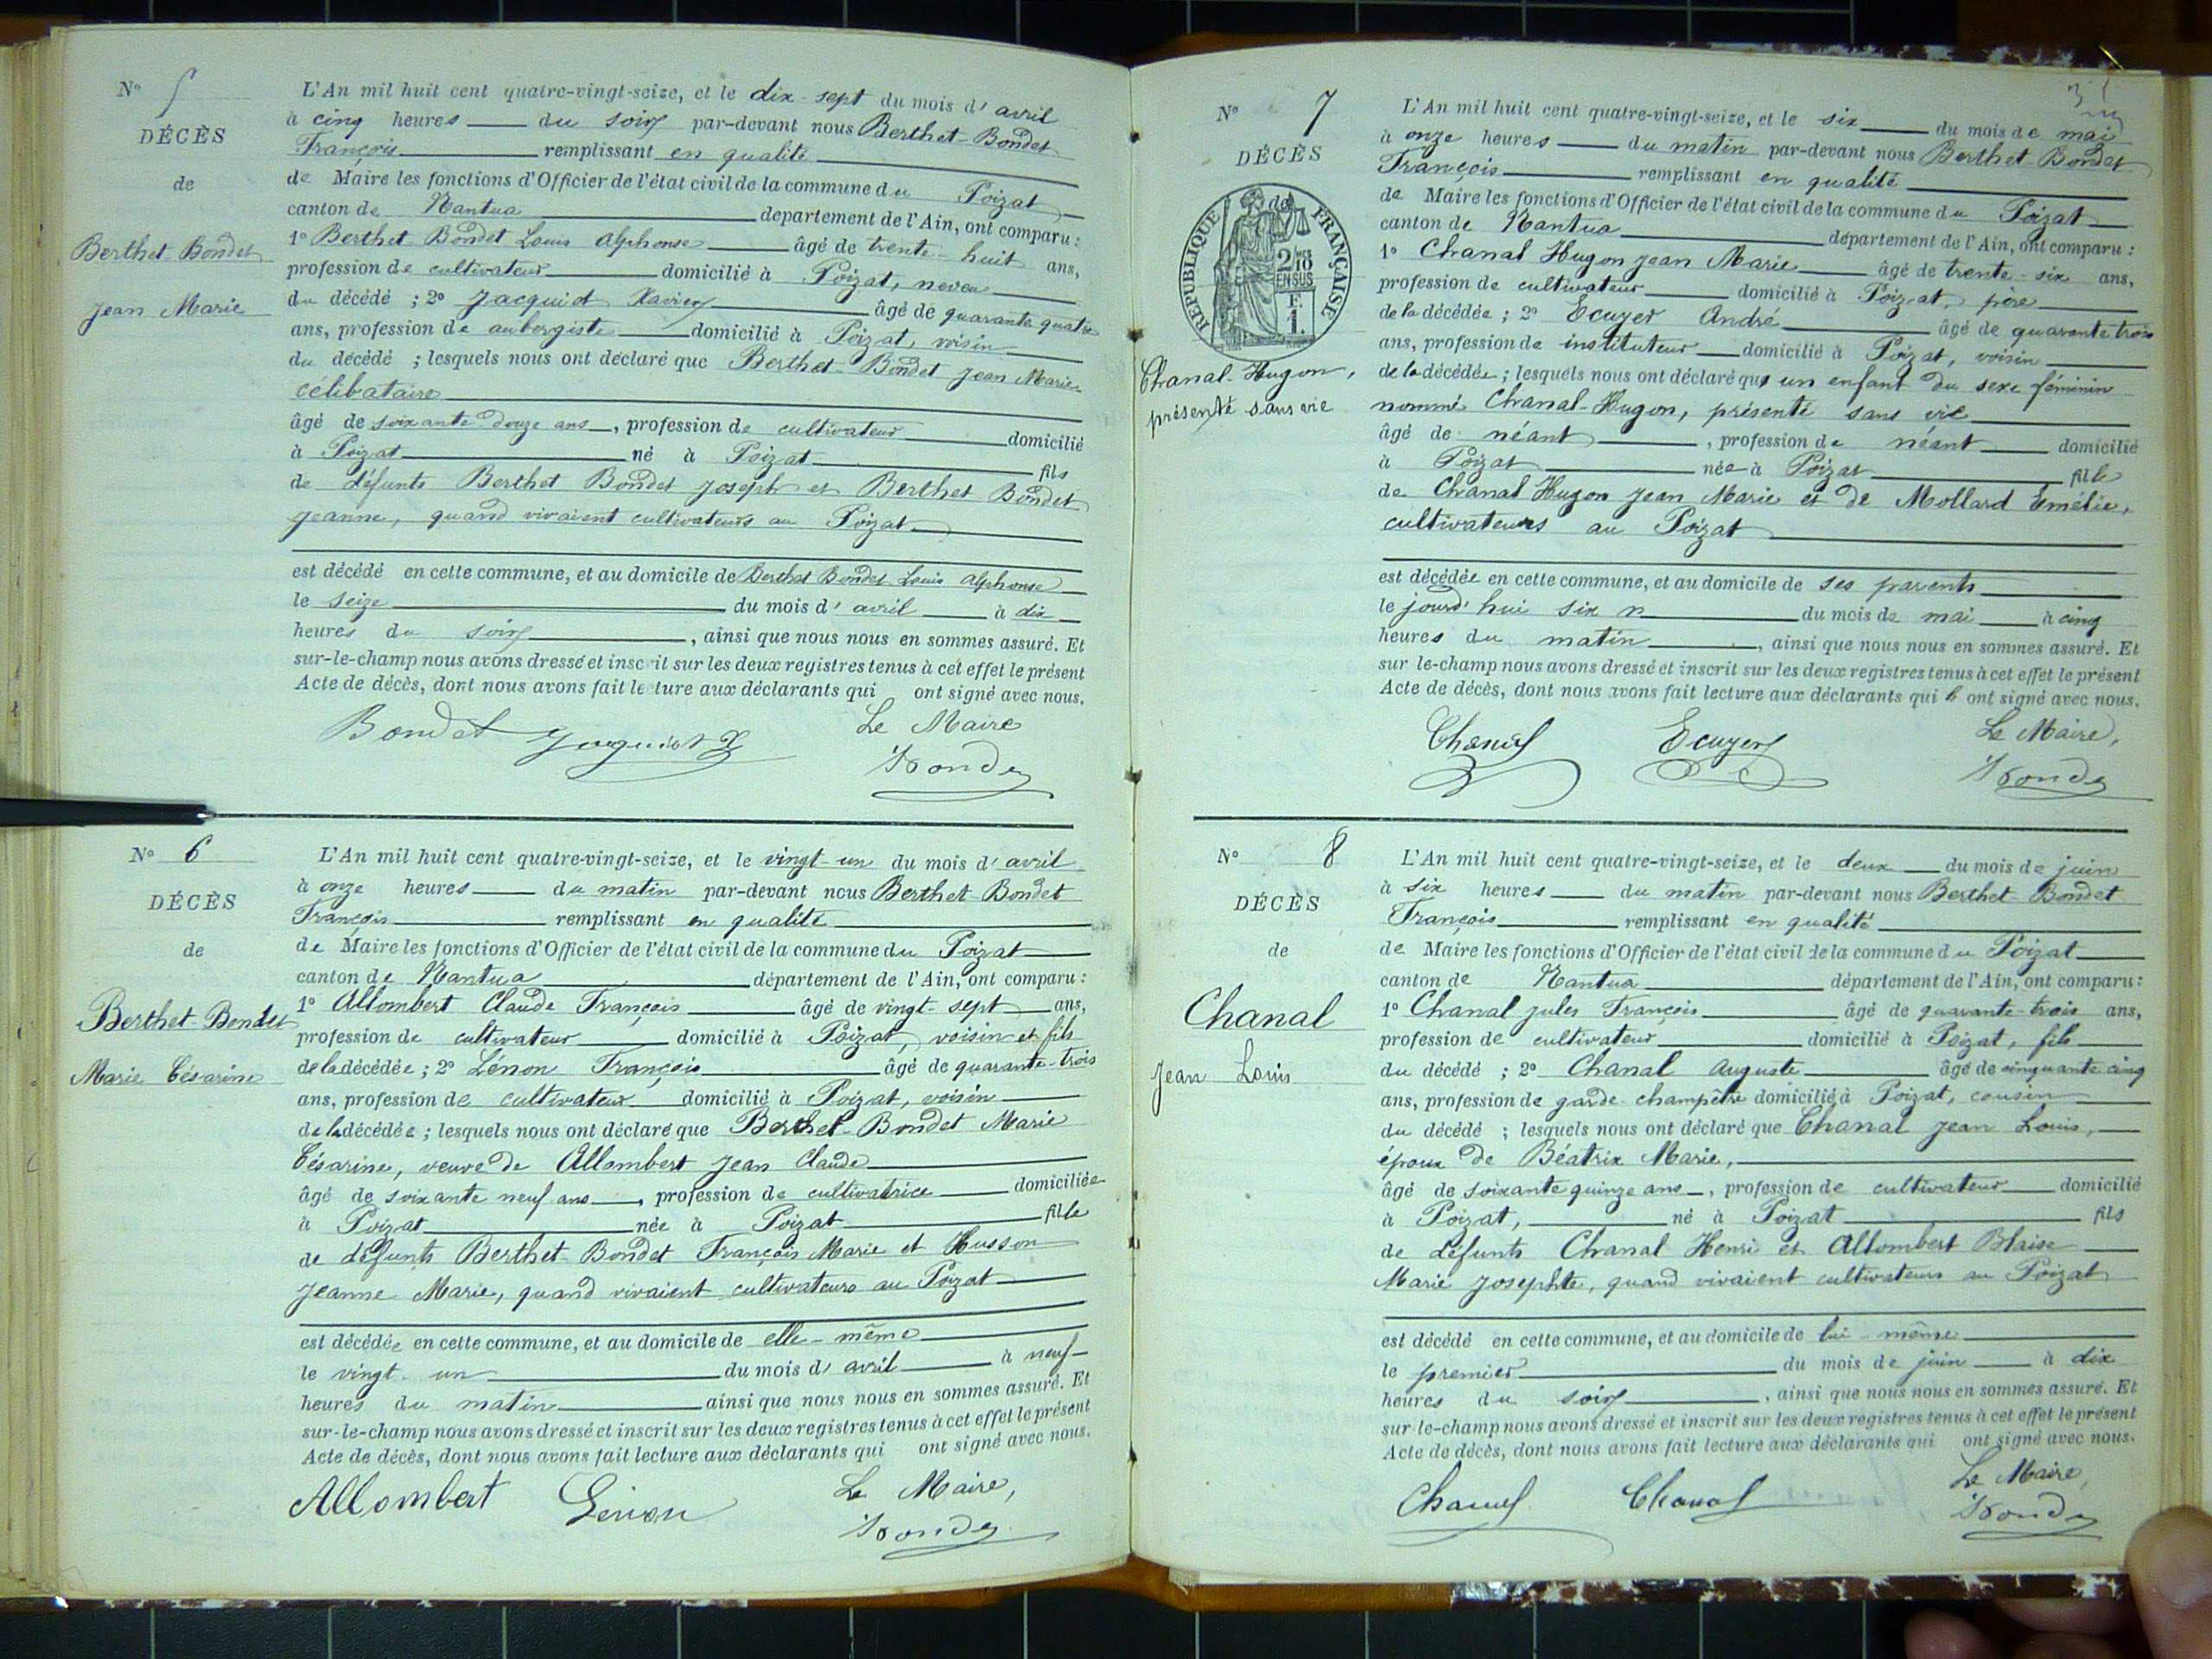 N° 5
DÉCÈS
de
Berthet-Bondet
Jean Marie
L'An mil huit cent quatre-vingt-seize, et le dix-sept du mois d'avril
à cinq heures du soir par-devant nous Berthet-Bondet
François remplissant en qualité
de Maire les fonctions d'Officier de l'état civil de la commune du Poizat
canton de Nantua département de l'Ain, ont comparu :
1° Berthet-Bondet Louis Alphonse âgé de trente-huit ans,
profession de cultivateur domicilié à Poizat, neveu
du décédé ; 2° Jacquiot Xavier âgé de quarante quatre
ans, profession de aubergiste domicilié à Poizat, voisin
du décédé ; lesquels nous ont déclaré que Berthet-Bondet Jean Marie
célibataire
âgé de soixante douze ans, profession de cultivateur domicilié
à Poizat né à Poizat fils
de défunts Berthet Bondet Joseph et Berthet Bondet
Jeanne, quand vivaient cultivateurs au Poizat
est décédé en cette commune, et au domicile de Berthet Bondet Louis Alphonse
le seize du mois d'avril à dix
heures du soir, ainsi que nous nous en sommes assuré. Et
sur-le-champ nous avons dressé et inscrit sur les deux registres tenus à cet effet le présent
Acte de décès, dont nous avons fait lecture aux déclarants qui ont signé avec nous.
Bondet Jacquiot X Le Maire
Bondet
N° 6
DÉCÈS
de
Berthet-Bondet
Marie Césarine
L'An mil huit cent quatre-vingt-seize, et le vingt-un du mois d'avril
à onze heures du matin par-devant nous Berthet-Bondet
François remplissant en qualité
de Maire les fonctions d'Officier de l'état civil de la commune du Poizat
canton de Nantua département de l'Ain, ont comparu :
1° Allombert Claude François âgé de vingt-sept ans,
profession de cultivateur domicilié à Poizat, voisin et fils
de la décédée ; 2° Lénon François âgé de quarante-trois
ans, profession de cultivateur domicilié à Poizat, voisin
de la décédée ; lesquels nous ont déclaré que Berthet-Bondet Marie
Césarine, veuve de Allombert Jean Claude
âgé de soixante neuf ans, profession de cultivatrice domiciliée
à Poizat née à Poizat fille
de défunts Berthet-Bondet François Marie et Husson
Jeanne Marie, quand vivaient cultivateurs au Poizat
est décédée en cette commune, et au domicile de elle-même
le vingt-un du mois d'avril à neuf
heures du matin ainsi que nous nous en sommes assuré. Et
sur-le-champ nous avons dressé et inscrit sur les deux registres tenus à cet effet le présent
Acte de décès, dont nous avons fait lecture aux déclarants qui ont signé avec nous.
Allombert Lénon Le Maire,
Bondet
N° 7
DÉCÈS
RÉPUBLIQUE FRANÇAISE
2/10 EN SUS
Chanal-Hugon,
présenté sans vie
L'An mil huit cent quatre-vingt-seize, et le six du mois de mai
à onze heures du matin par-devant nous Berthet-Bondet
François remplissant en qualité
de Maire les fonctions d'Officier de l'état civil de la commune du Poizat
canton de Nantua département de l'Ain, ont comparu :
1° Chanal Hugon Jean Marie âgé de trente-six ans,
profession de cultivateur domicilié à Poizat, père
de la décédée ; 2° Ecuyer André âgé de quarante trois
ans, profession de instituteur domicilié à Poizat, voisin
de la décédée ; lesquels nous ont déclaré que un enfant du sexe féminin
nommé Chanal-Hugon, présenté sans vie
âgé de néant, profession de néant domicilié
à Poizat née à Poizat fille
de Chanal Hugon Jean Marie et de Mollard Emélie,
cultivateurs au Poizat
est décédée en cette commune, et au domicile de ses parents
le jourd'hui six du mois de mai à cinq
heures du matin, ainsi que nous nous en sommes assuré. Et
sur le-champ nous avons dressé et inscrit sur les deux registres tenus à cet effet le présent
Acte de décès, dont nous avons fait lecture aux déclarants qui ont signé avec nous.
Chanal Ecuyer Le Maire,
Bondet
N° 8
DÉCÈS
de
Chanal
Jean Louis
L'An mil huit cent quatre-vingt-seize, et le deux du mois de juin
à six heures du matin par-devant nous Berthet-Bondet
François remplissant en qualité
de Maire les fonctions d'Officier de l'état civil de la commune du Poizat
canton de Nantua département de l'Ain, ont comparu :
1° Chanal Jules François âgé de quarante-trois ans,
profession de cultivateur domicilié à Poizat, fils
du décédé ; 2° Chanal Auguste âgé de cinquante cinq
ans, profession de garde-champêtre domicilié à Poizat, cousin
du décédé ; lesquels nous ont déclaré que Chanal Jean Louis,
époux de Béatrix Marie,
âgé de soixante quinze ans, profession de cultivateur domicilié
à Poizat, né à Poizat fils
de défunts Chanal Henri et Allombert Blaise
Marie Josephte, quand vivaient cultivateurs au Poizat
est décédé en cette commune, et au domicile de lui-même
le premier du mois de juin à dix
heures du soir, ainsi que nous nous en sommes assuré. Et
sur-le-champ nous avons dressé et inscrit sur les deux registres tenus à cet effet le présent
Acte de décès, dont nous avons fait lecture aux déclarants qui ont signé avec nous.
Chanal Chanal Le Maire,
Bondet